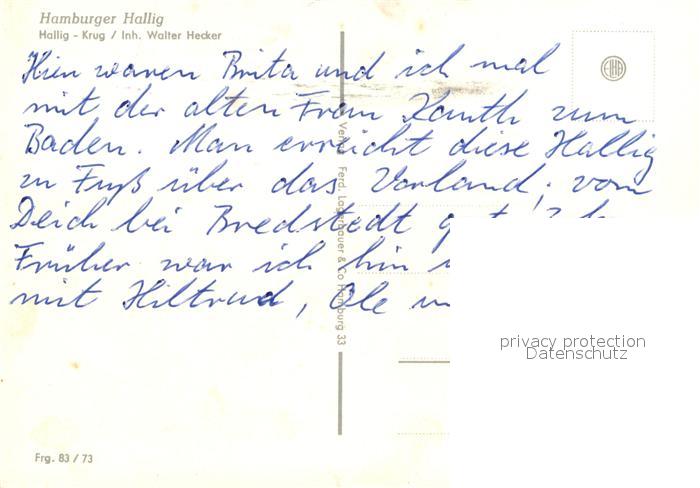 Hamburger Hallig
Hallig - Krug / Inh. Walter Hecker
Hier waren Brita und ich mal
mit der alten Frau Kanth zum
Baden. Man erreicht diese Hallig
zu Fuß über das Vorland; vom
Deich bei Bredstedt
Früher war ich hin
mit Hiltrud, Ole
Verlag Ferd. Lagerbauer & Co Hamburg 33
EHA
privacy protection
Datenschutz
Frg. 83 / 73